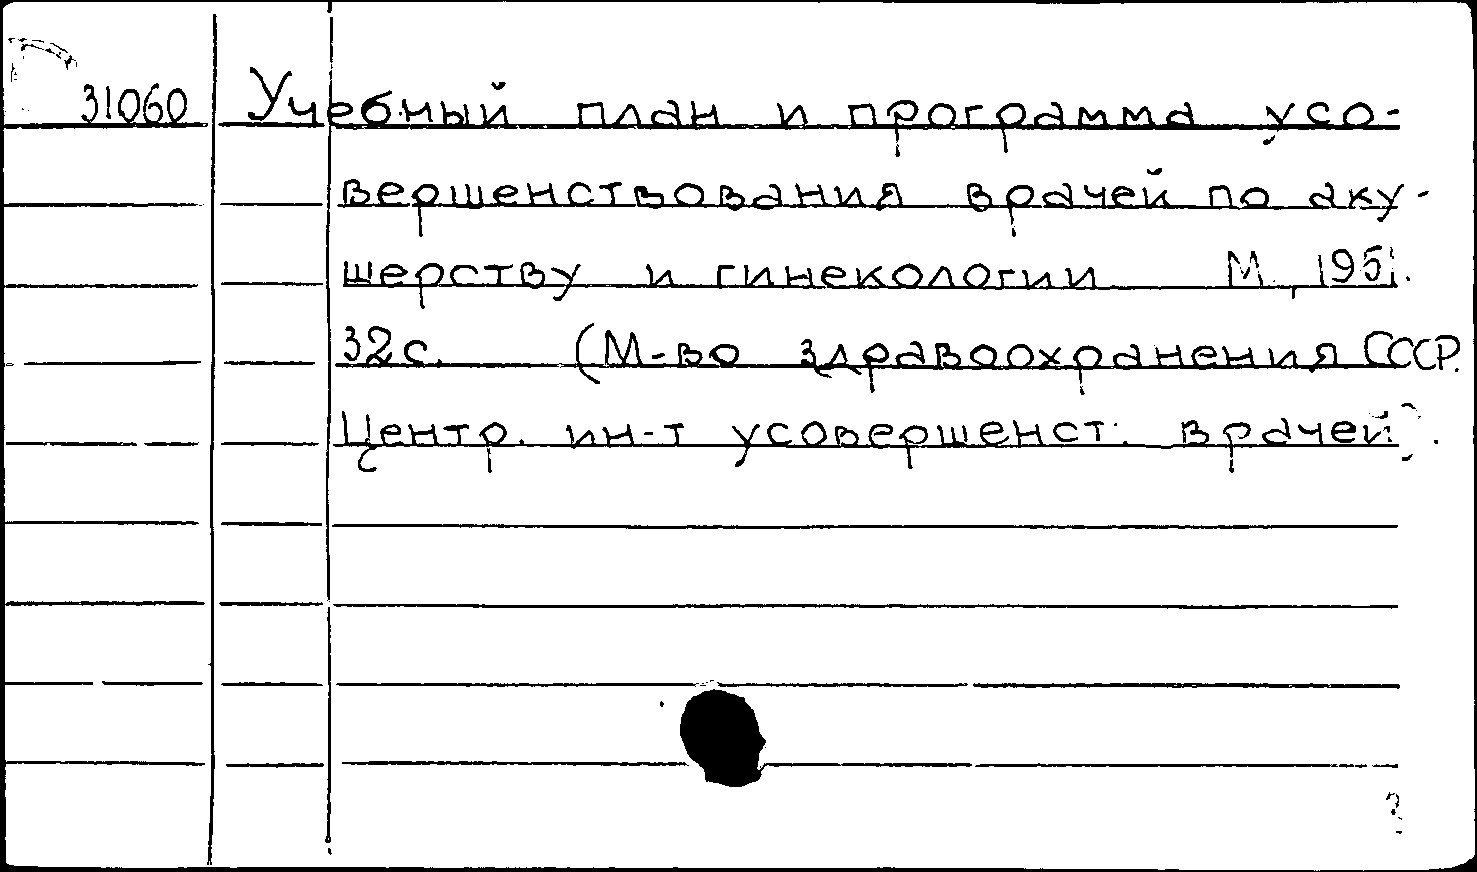 31060 Учебный план и программа усо-
вершенствования врачей по аку-
шерству и гинекологии М., 1951.
32с. (М-во здравоохранения СССР.
Центр. ин-т усовершенст. врачей).